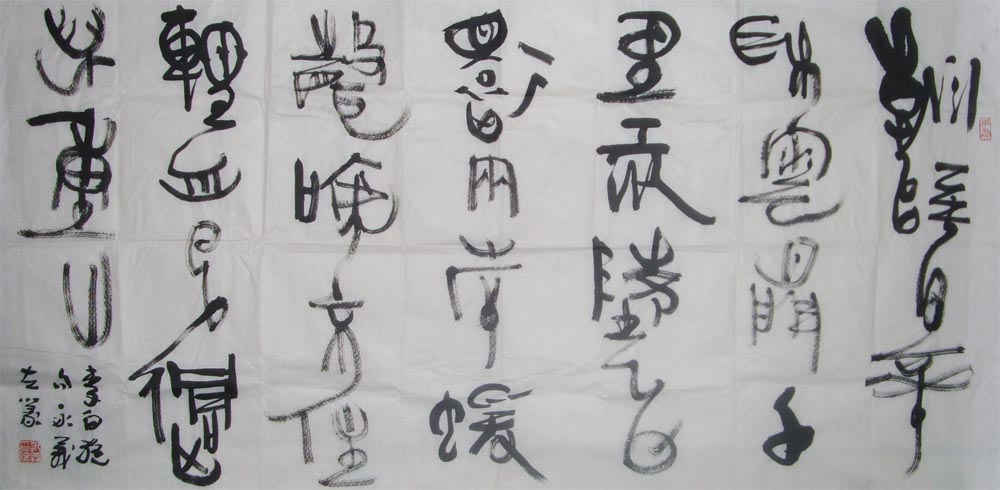 朝辭白帝
彩雲間千
里江陵一日
還兩岸猿
聲啼不住
輕舟已過
萬重山
李白